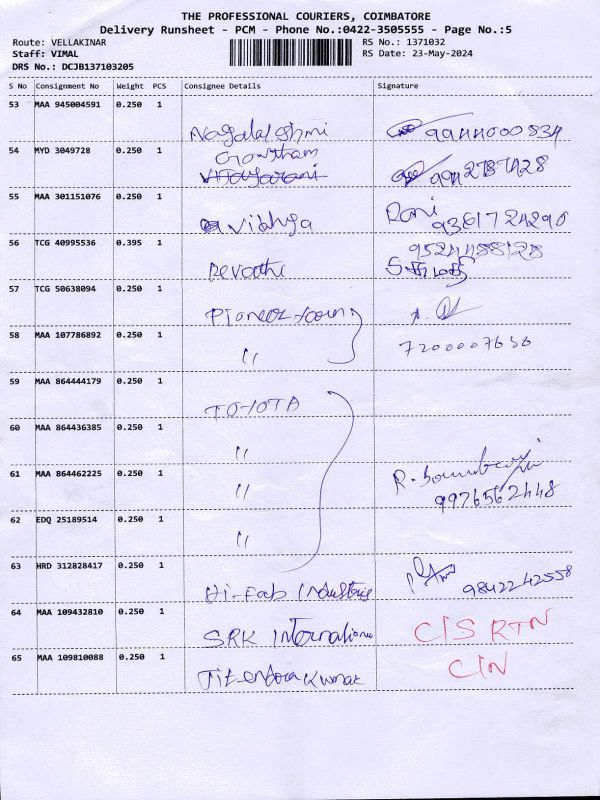 THE PROFESSIONAL COURIERS, COIMBATORE
Delivery Runsheet - PCM - Phone No.:0422-3505555 - Page No.:5
Route: VELLAKINAR
Staff: VIMAL
DRS No.: DCJB137103205
RS No.: 1371032
RS Date: 23-May-2024
S No Consignment No Weight PCS Consignee Details Signature
53 MAA 945004591 0.250 1
Nagalakshmi 9944000834
54 MYD 3049728 0.250 1
Gowtham
9942787428
55 MAA 301151076 0.250 1
Vidhya Rani
9361724290
56 TCG 40995536 0.395 1
9524488128
Revathi
57 TCG 50638094 0.250 1
Pioneer
58 MAA 107786892 0.250 1
" 7200007636
59 MAA 864444179 0.250 1
TOYOTA
60 MAA 864436385 0.250 1
"
61 MAA 864462225 0.250 1
" 9976562448
62 EDQ 25189514 0.250 1
"
63 HRD 312828417 0.250 1
Hi-Fab Industries 9842242558
64 MAA 109432810 0.250 1
SRK International C/S RTN
65 MAA 109810088 0.250 1
C/N